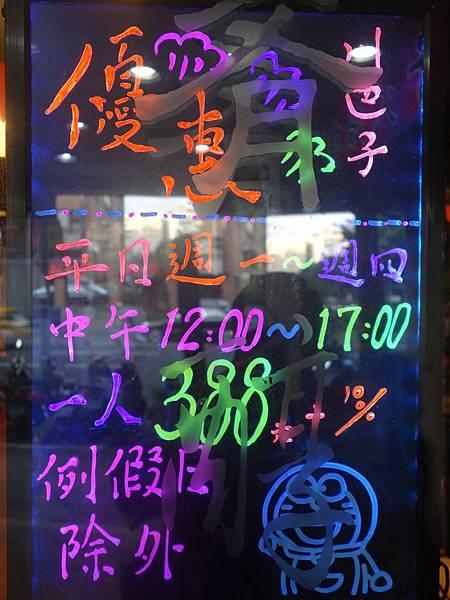 優惠
平日週一~週四
中午12:00~17:00
一人388元+10%
例假日
除外